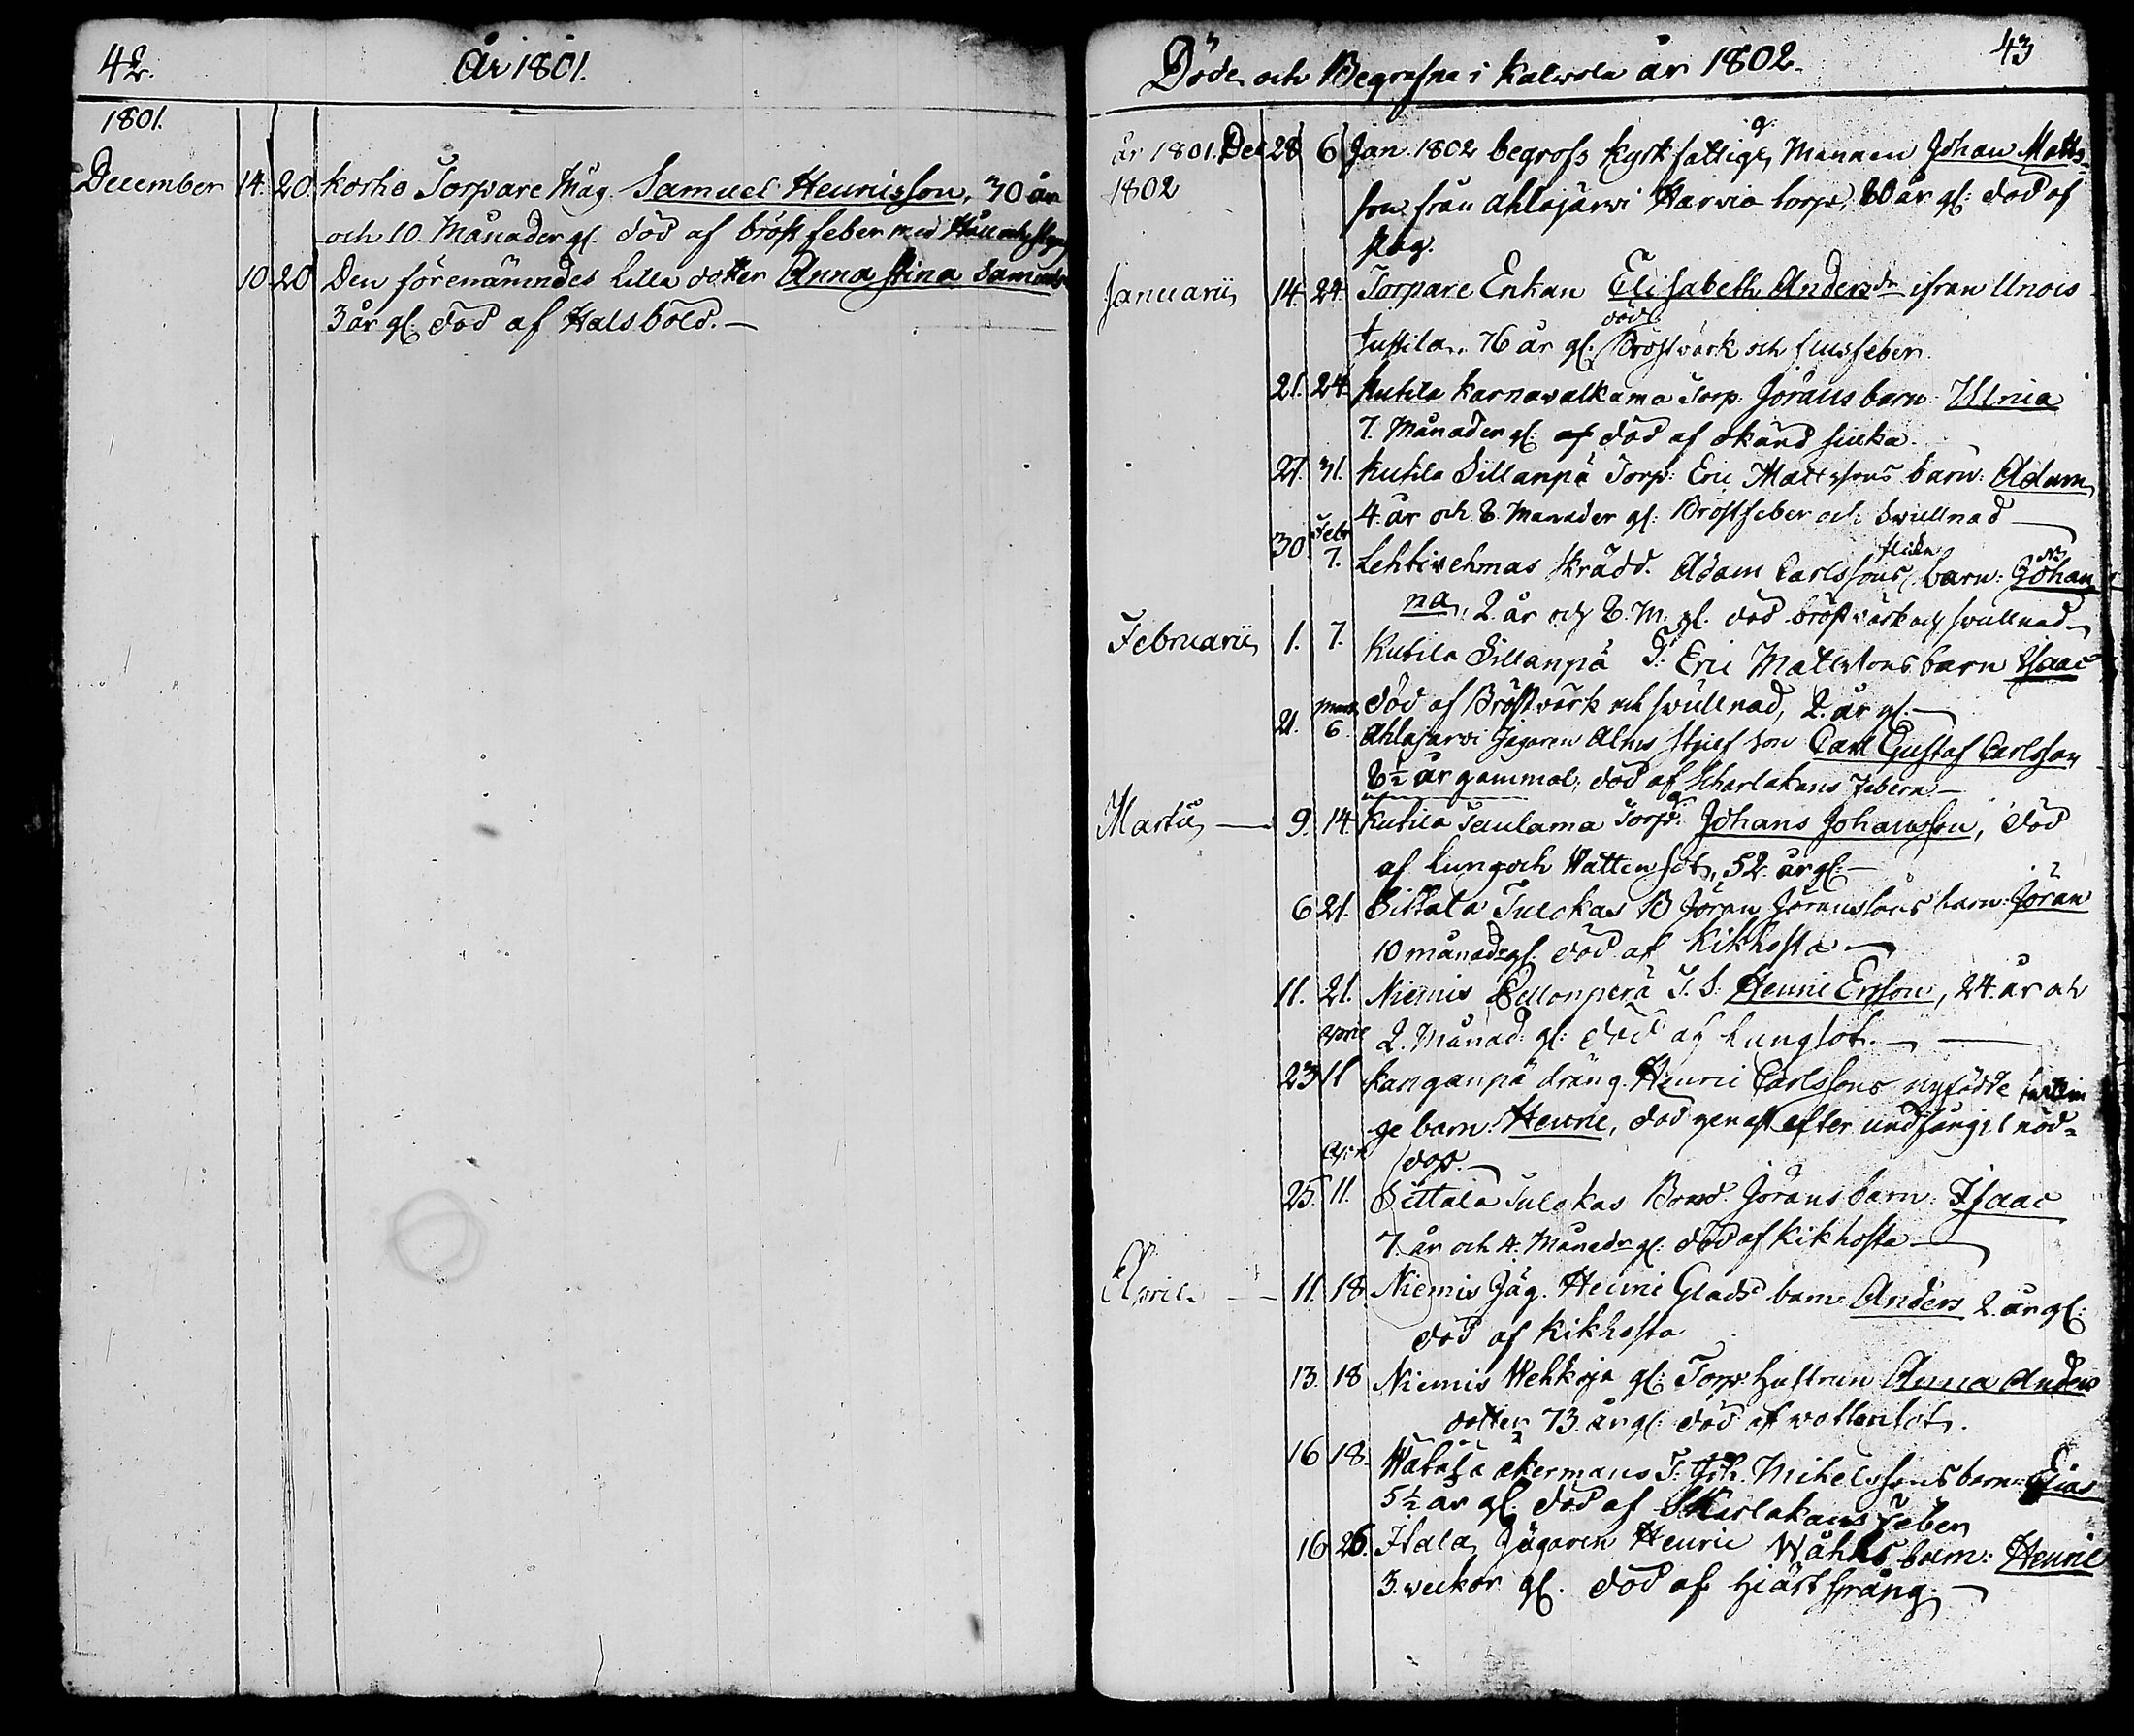 42.
År 1801.
1801.
December 14. 20. Korho Torpare Måg. Samuel Henricsson, 30 år
och 10. Månader gl. död af bröst feber med Håll och styng
10 20 Den förenämndes lilla dotter Anna Stina Samuelsdr
3 år gl: död af Halsböld.
43
Döde och Begrafne i Kalwola år 1802.
år 1801. Dec 28 6 Jan. 1802 begrofs Kyrk fattige g. Mannen Johan Matts-
1802
son från Ahlajärwi Harvia torp, 80 år gl: död af
slag.
Januarii 14. 24. Torpare Enkan Elisabeth Andersdr ifrån Unois
tustila, 76 år gl: död Bröstvärk och flussfeber.
21. 24. Kutila Karnavalkama Torp: Jörans barn: Ulrica
7. Månader gl: af död af okänd siuka.
27. 31. Kutila Sillanpä Torp: Eric Mattssons barn: Adam
4. år och 8. Månader gl: Bröstfeber och Swullnad
30 Febr 7. Lehtiwehmas Skrädd. Adam Carlssons flicka barn: Johan
na, 2. år och 8. M. gl. död bröstvärk och swullnad
Februarii 1. 7. Kutila Sillanpä T: Eric Matssons barn Isaac
död af Bröstvärk och swullnad, 2. år gl.
21. Mart. 6. Ahlajärwi Jägaren Alms Stjuf son Carl Gustaf Carlsson
8½ år gammal, död af Scharlakans Febern
Martii 9. 14 Kutila Taulama Torp: g. Johans Johansson, död
af lung och Wattensot, 52. år gl:
6 21. Sittala Tulokas B Jöran Jöranssons barn: Jöran
10 månadr gl: död af Kikhosta
11. 21. Niemis Pellonperä T. S: Henric Ersson, 24. år och
2. Månad: gl: död af Lungsot.
23 April 11 Kanganpä dräng. Henric Carlssons nyfödde twillin
ge barn: Henric, död genast efter undfångit nöd-
dop.
25. Apr. 11. Sittala Tulokas Bond. Jörans barn: Isaac
7. år och 4. Månadr gl: död af Kikhosta
April 11. 18. Niemis Jäg. Henric Glads barn: Anders 2. år gl:
död af Kikhosta
13. 18 Niemis Wehkoja gl: Torp: hustrun Anna Anders
dotter 73. år gl: död af wattensot.
16 18. Åkermans T: Joh. Mihelssons barn: Elias
5½ år gl. död af Skarlakans Feber
16 26. Itala Jägaren Henric Wåhls barn: Henric
3. weckor gl. död af hjärtsprång.